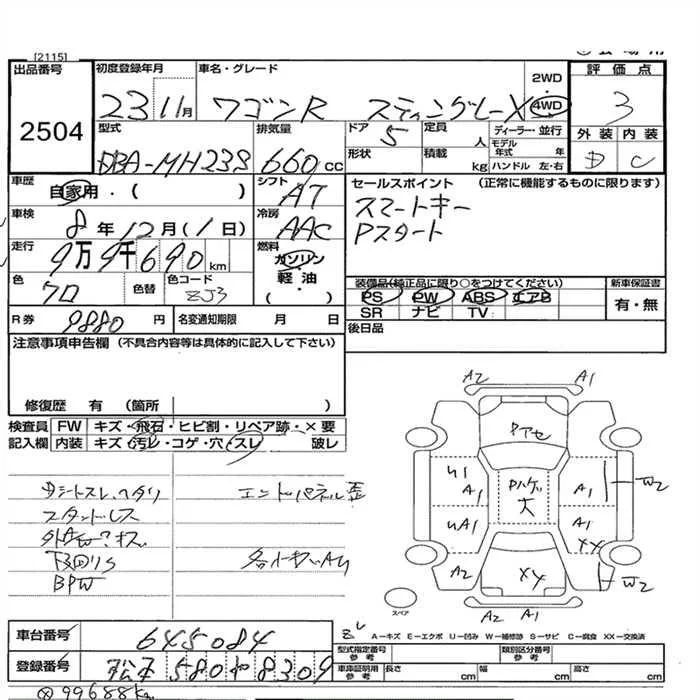 [2115]
出品番号 初度登録年月 車名・グレード 2WD 4WD 評価点
2504
23 11月 ワゴンR スティングレーX 3
外装 内装
D C
型式 排気量 ドア 定員 人 ディーラー・並行
DBA-MH23S 660cc 5
形状 積載 kg モデル年式 年
ハンドル 左・右
車歴 自家用・( ) シフト AT
セールスポイント (正常に機能するものに限ります)
スマートキー
Pスタート
車検 8年12月(1日) 冷房 AAC
走行 9万9千690km 燃料 ガソリン・軽油・( )
色 クロ 色替 色コード ZJ3
装備品(純正品に限り○をつけてください) 新車保証書
PS PW ABS エアB 有・無
SR ナビ TV
R券 9880円 名変通知期限 月 日
後日品
注意事項申告欄 (不具合内容等は具体的に記入して下さい)
修復歴 有 (箇所 )
検査員 FW キズ・飛石・ヒビ割・リペア跡・×要
記入欄 内装 キズ・汚レ・コゲ・穴・スレ 破レ
Dシートスレ、ヘタリ エンドパネル歪
スタンドレス
下回りS
BPW
A2 A1
Pアセ
U1 A1 Pハゲ大 A1 W2
UA1 A1 XX
A2 XY W2
A2 A1
スペア
A-キズ E-エクボ U-凹み W-補修跡 S-サビ C-腐食 XX-交換済
車台番号 645084
型式指定番号 参考 類別区分番号 参考
登録番号 松本 580 や 8309
車庫証明 参考 長さ cm 幅 cm 高さ cm
99688Km